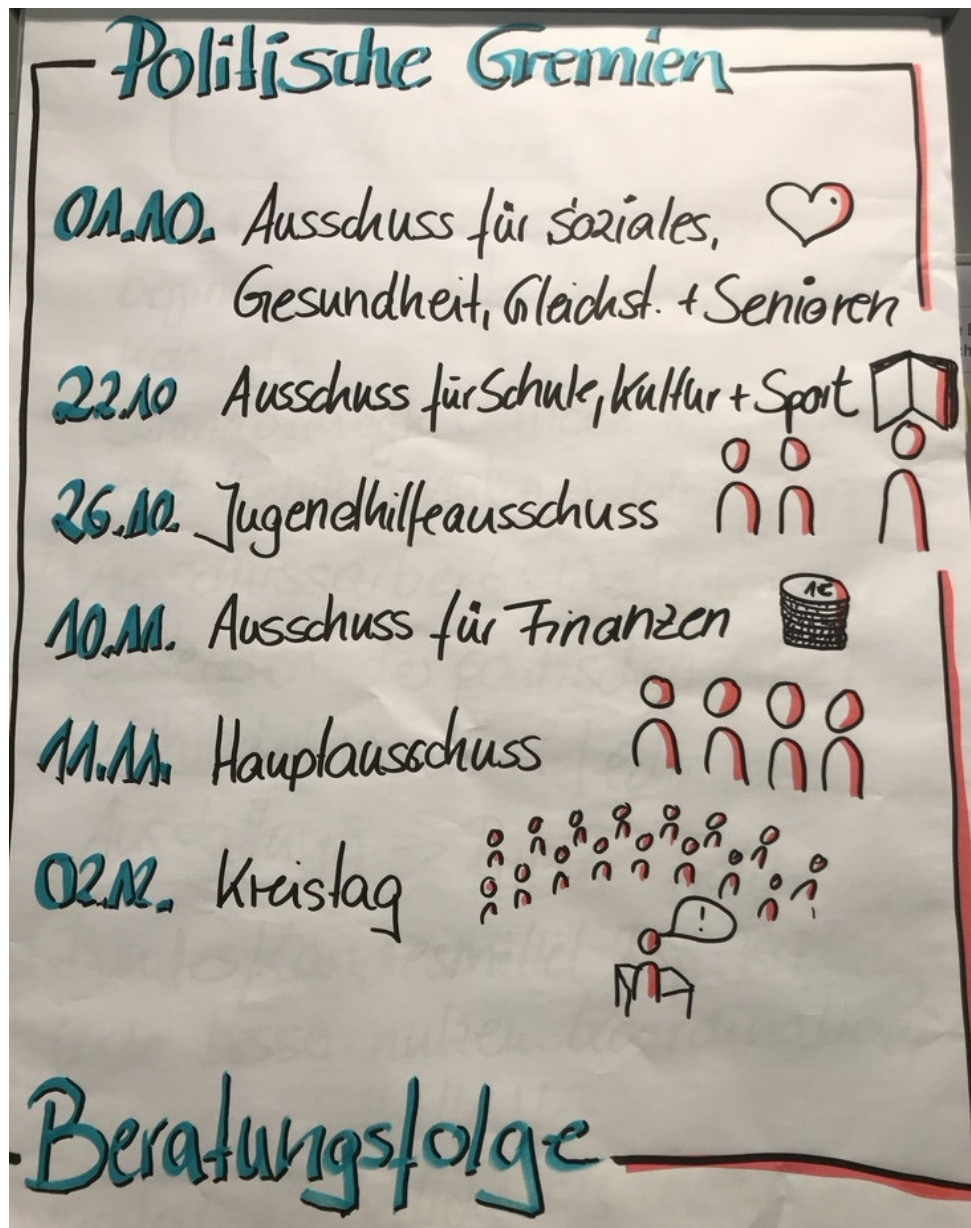 Politische Gremien
01.10. Ausschuss für Soziales,
Gesundheit, Gleichst. + Senioren
22.10 Ausschuss für Schule, Kultur + Sport
26.10. Jugendhilfeausschuss
10.11. Ausschuss für Finanzen
1€
11.11. Hauptausschuss
02.12. Kreistag
!
Beratungsfolge